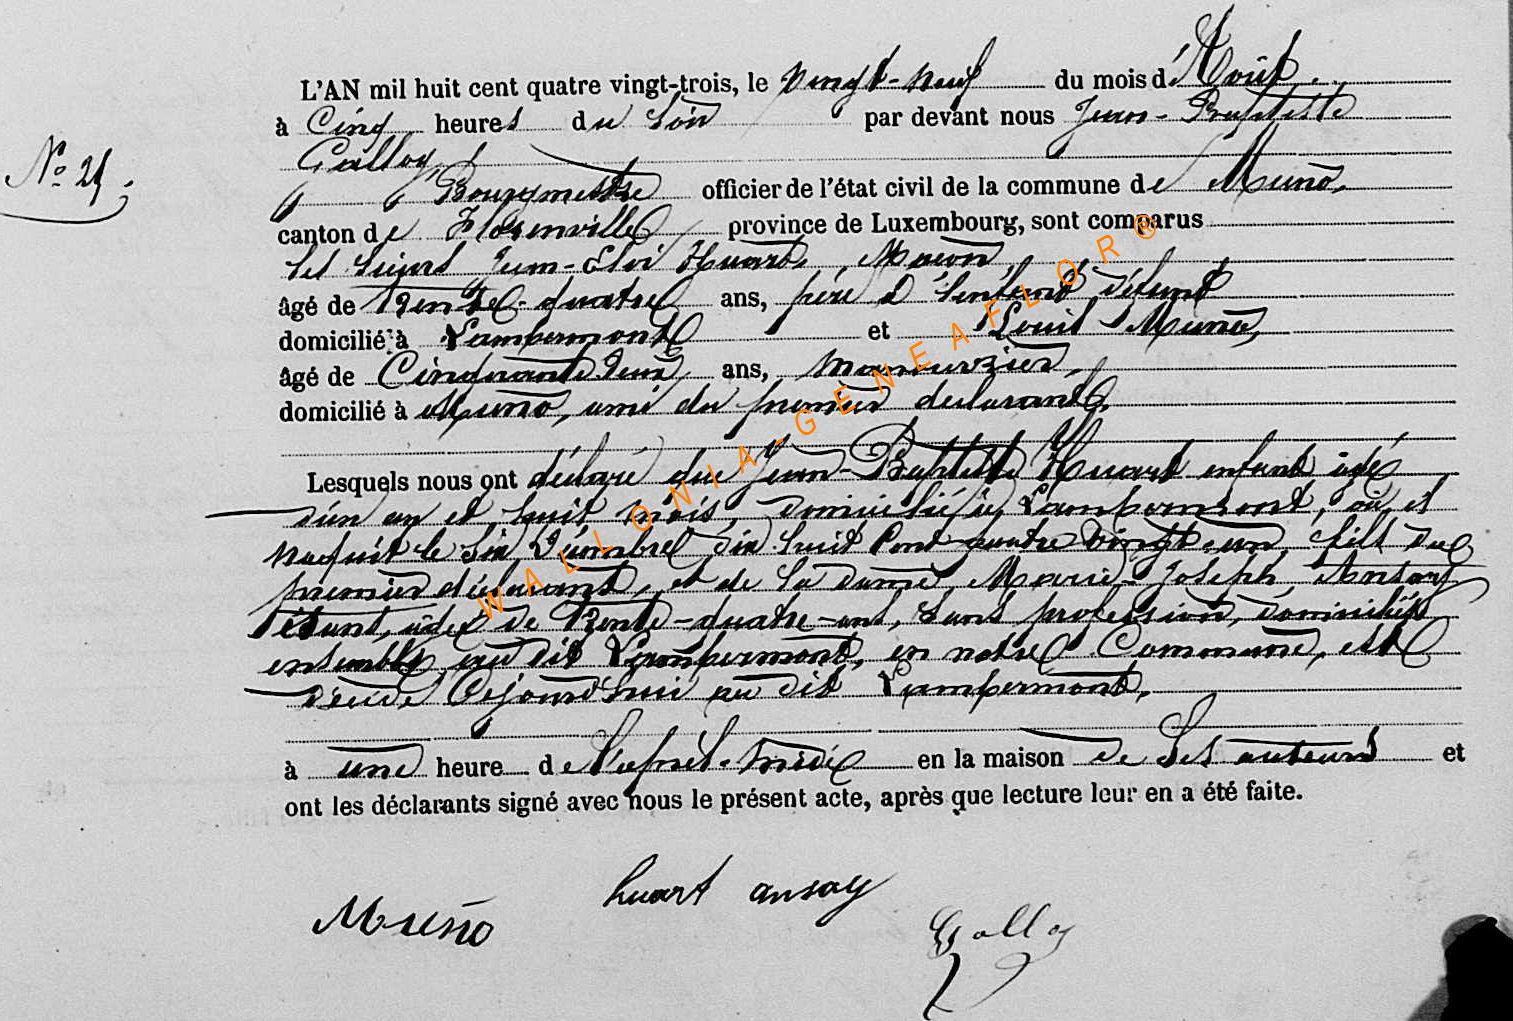 L'AN mil huit cent quatre vingt-trois, le vingt-neuf du mois d'Août
à Cinq heures du Soir par devant nous Jean-Baptiste
N° 21. Galloy
Bourgmestre officier de l'état civil de la commune de Muno,
canton de Florenville province de Luxembourg, sont comparus
les Sieurs Jean-Eloi Huart, Maçon,
âgé de Trente-quatre ans, père à l'enfant défunt
domicilié à Lambermont et Louis Muno,
âgé de Cinquante deux ans, manouvrier,
domicilié à Muno, ami du premier déclarant,
Lesquels nous ont déclaré que Jean-Baptiste Huart enfant âgé
d'un an et huit mois, domicilié à Lambermont, où il
naquit le Six Décembre dix huit Cent quatre vingt-un, fils du
premier déclarant, et de la dame Marie-Joseph Ansay
âgée de Trente-quatre-ans, sans profession, domiciliés
ensemble au dit Lambermont, en notre Commune, est
décédé Cejourd'hui au dit Lambermont,
à une heure de l'après-midi en la maison de Ses auteurs et
ont les déclarants signé avec nous le présent acte, après que lecture leur en a été faite.
Muno huart ansay Galloy
WALLONIA-GENEAFLOR®